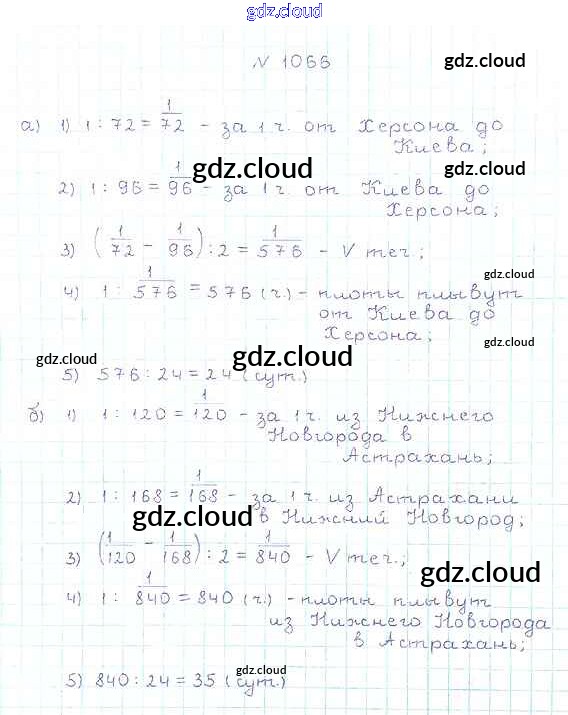 gdz.cloud
№ 1066
gdz.cloud
а) 1) 1 : 72 = 1/72 - за 1 ч. от Херсона до
Киева;
gdz.cloud
gdz.cloud
2) 1 : 96 = 1/96 - за 1 ч. от Киева до
Херсона;
3) (1/72 - 1/96) : 2 = 1/576 - V теч.;
gdz.cloud
4) 1 : 1/576 = 576 (ч.) - плоты плывут
от Киева до
Херсона;
gdz.cloud
gdz.cloud
gdz.cloud
5) 576 : 24 = 24 (сут.)
б) 1) 1 : 120 = 1/120 - за 1 ч. из Нижнего
Новгорода в
Астрахань;
gdz.cloud
2) 1 : 168 = 1/168 - за 1 ч. из Астрахани
в Нижний Новгород;
gdz.cloud
3) (1/120 - 1/168) : 2 = 1/840 - V теч.;
gdz.cloud
4) 1 : 1/840 = 840 (ч.) - плоты плывут
из Нижнего Новгорода
в Астрахань;
gdz.cloud
5) 840 : 24 = 35 (сут.)